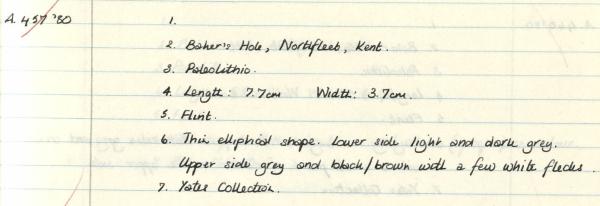 A. 457 '80 1.
2. Baker's Hole, Northfleet, Kent.
3. Paleolithic.
4. Length: 7.7cm Width: 3.7cm.
5. Flint.
6. Thin elliptical shape. Lower side light and dark grey.
Upper side grey and black/brown with a few white flecks.
7. Yates Collection.